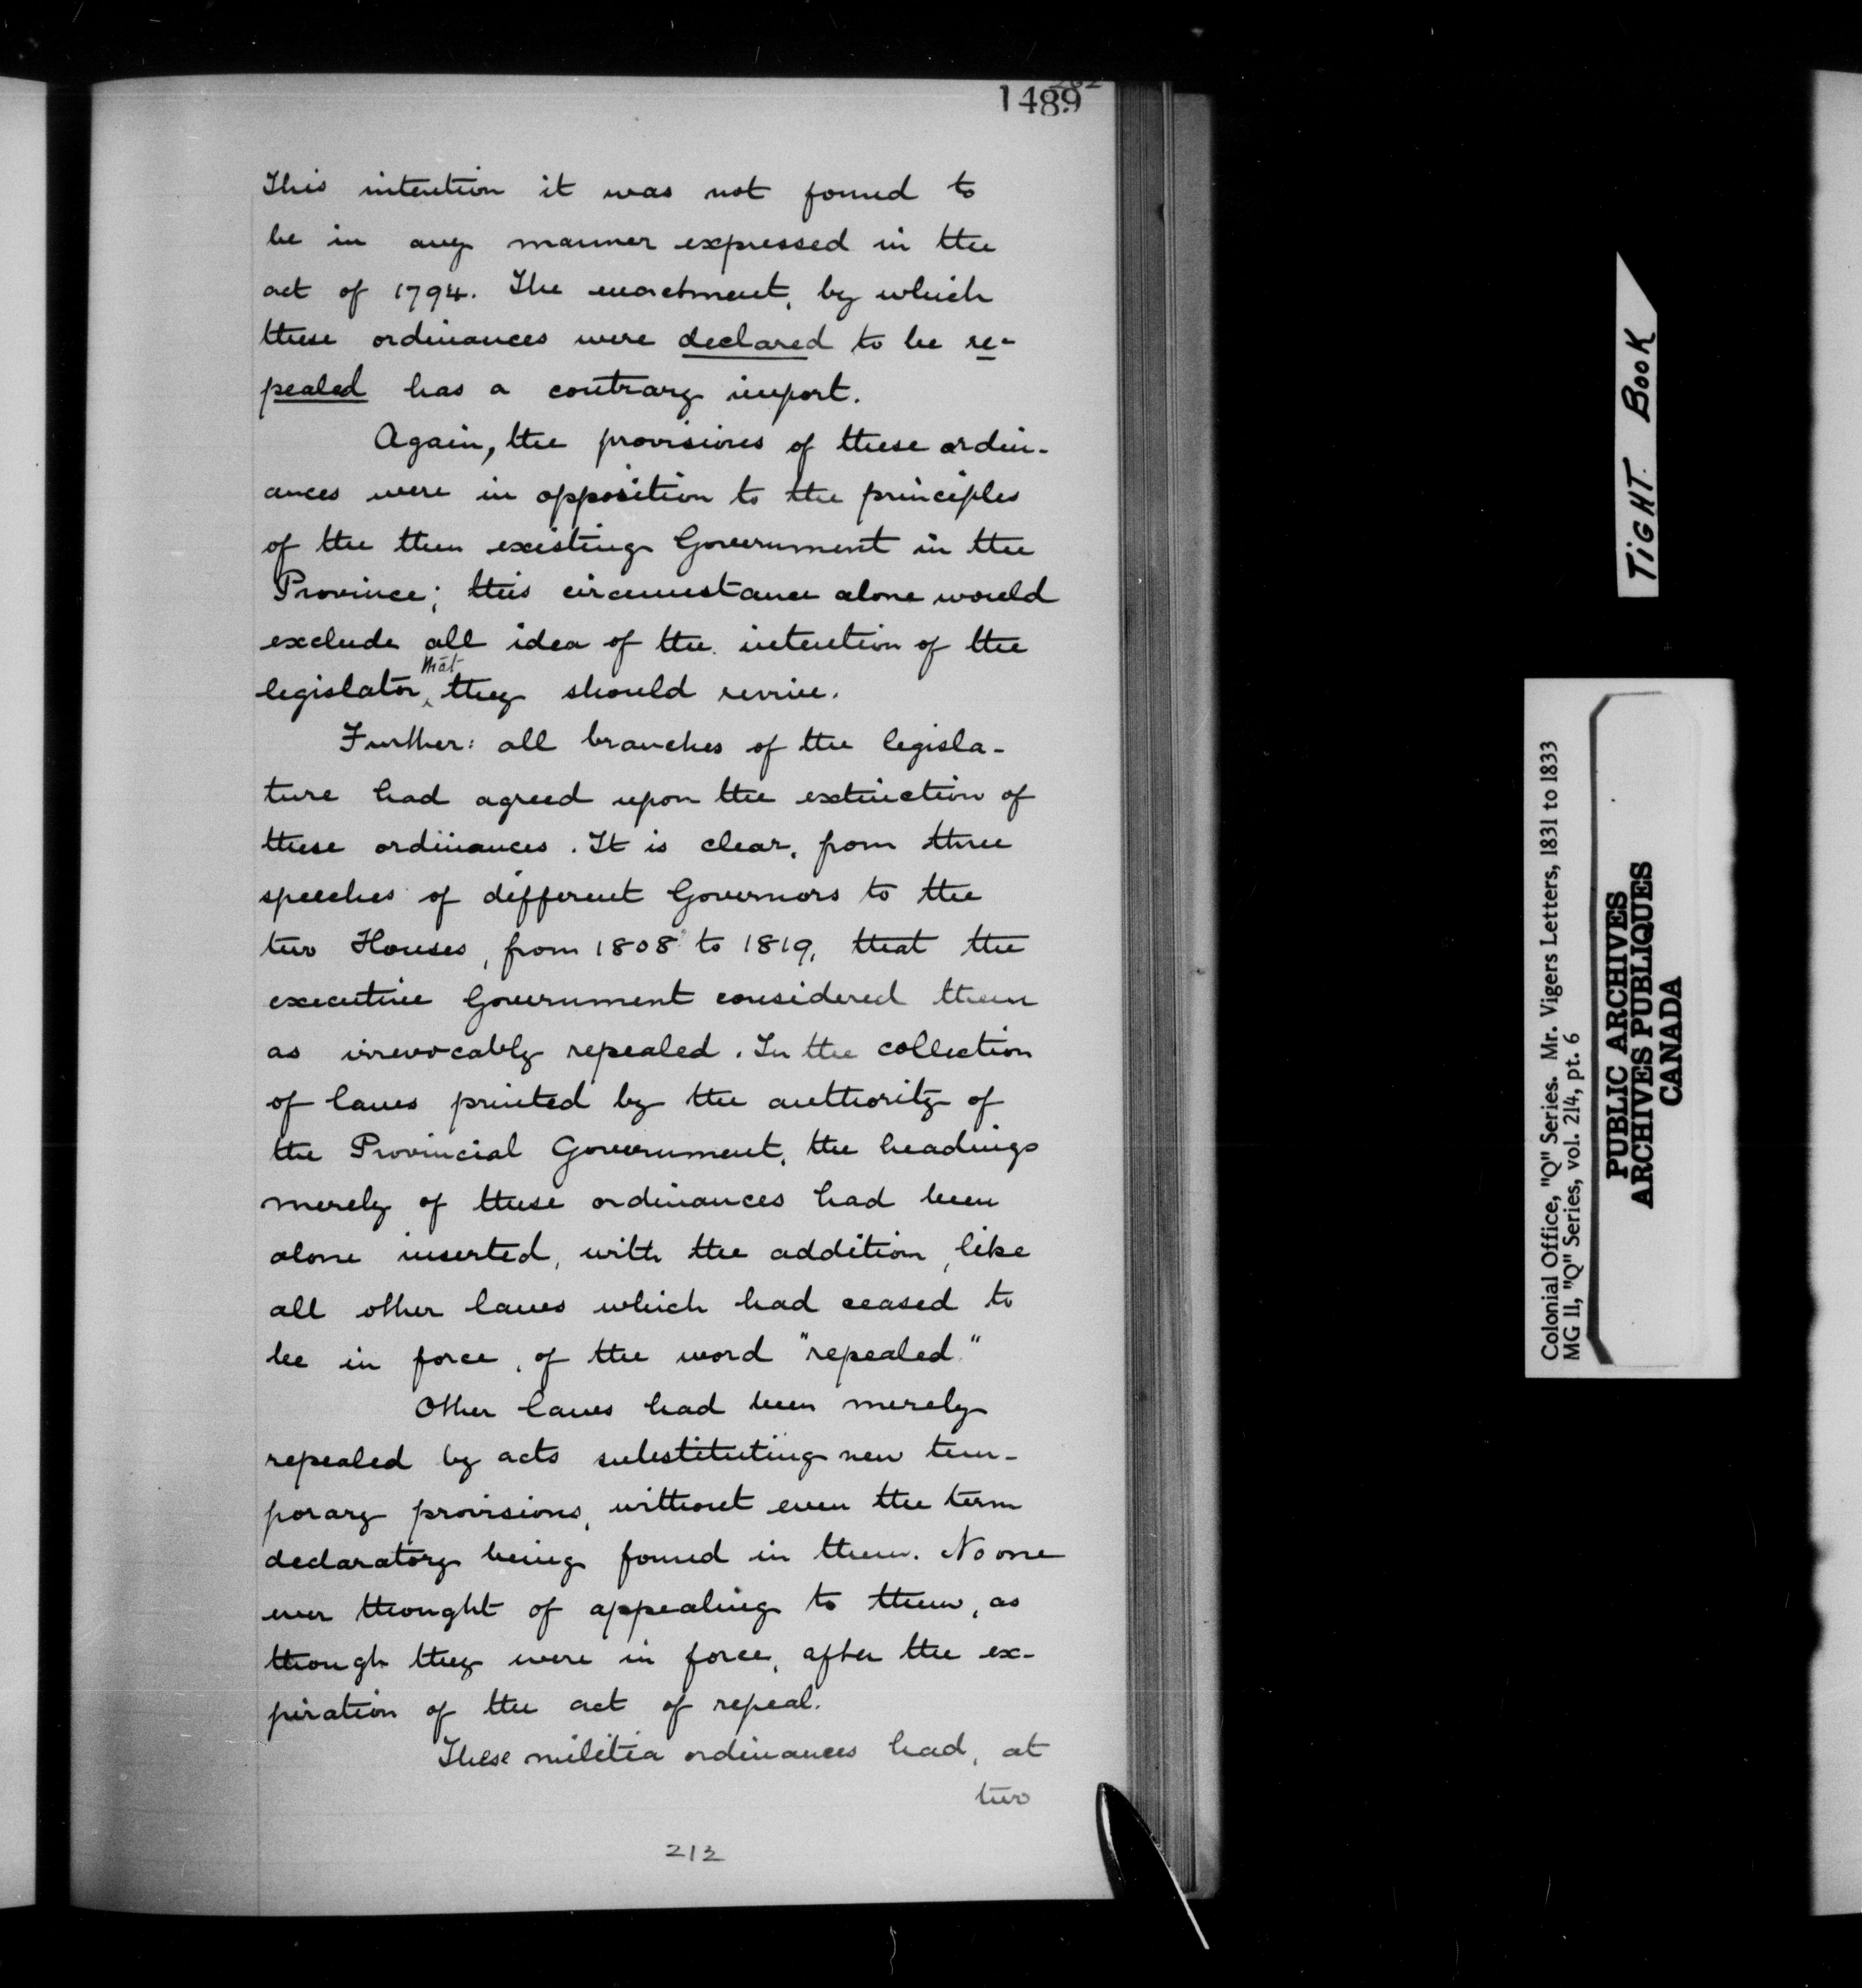 1489
This intention it was not found to
be in any manner expressed in the
act of 1794. The enactment, by which
these ordinances were declared to be re-
pealed has a contrary import.
Again, the provisions of these ordin-
ances were in opposition to the principles
of the then existing Government in the
Province; this circumstance alone would
exclude all idea of the intention of the
legislator, that they should revive.
Further: all branches of the legisla-
ture had agreed upon the extinction of
these ordinances. It is clear, from three
speeches of different Governors to the
two Houses, from 1808 to 1819, that the
executive Government considered them
as irrevocably repealed. In the collection
of laws printed by the authority of
the Provincial Government, the headings
merely of these ordinances had been
alone inserted, with the addition, like
all other laws which had ceased to
be in force, of the word "repealed."
Other laws had been merely
repealed by acts substituting new tem-
porary provisions, without even the term
declaratory being found in them. No one
ever thought of appealing to them, as
though they were in force, after the ex-
piration of the act of repeal.
These militia ordinances had, at
two
213
TIGHT BOOK
Colonial Office, "Q" Series. Mr. Vigers Letters, 1831 to 1833
MG 11, "Q" Series, vol. 214, pt. 6
PUBLIC ARCHIVES
ARCHIVES PUBLIQUES
CANADA